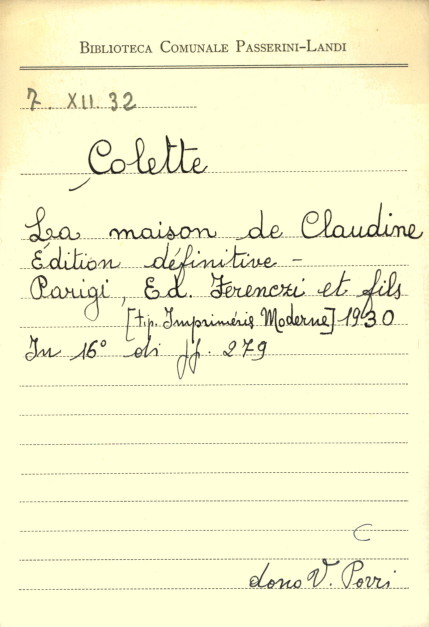 BIBLIOTECA COMUNALE PASSERINI-LANDI
7. XII. 32
Colette
La maison de Claudine
Édition définitive -
Parigi, Ed. Ferenczi et fils
[tip. Impriméris Moderne] 1930
In 16° di pp. 279
C
dono V. Porri